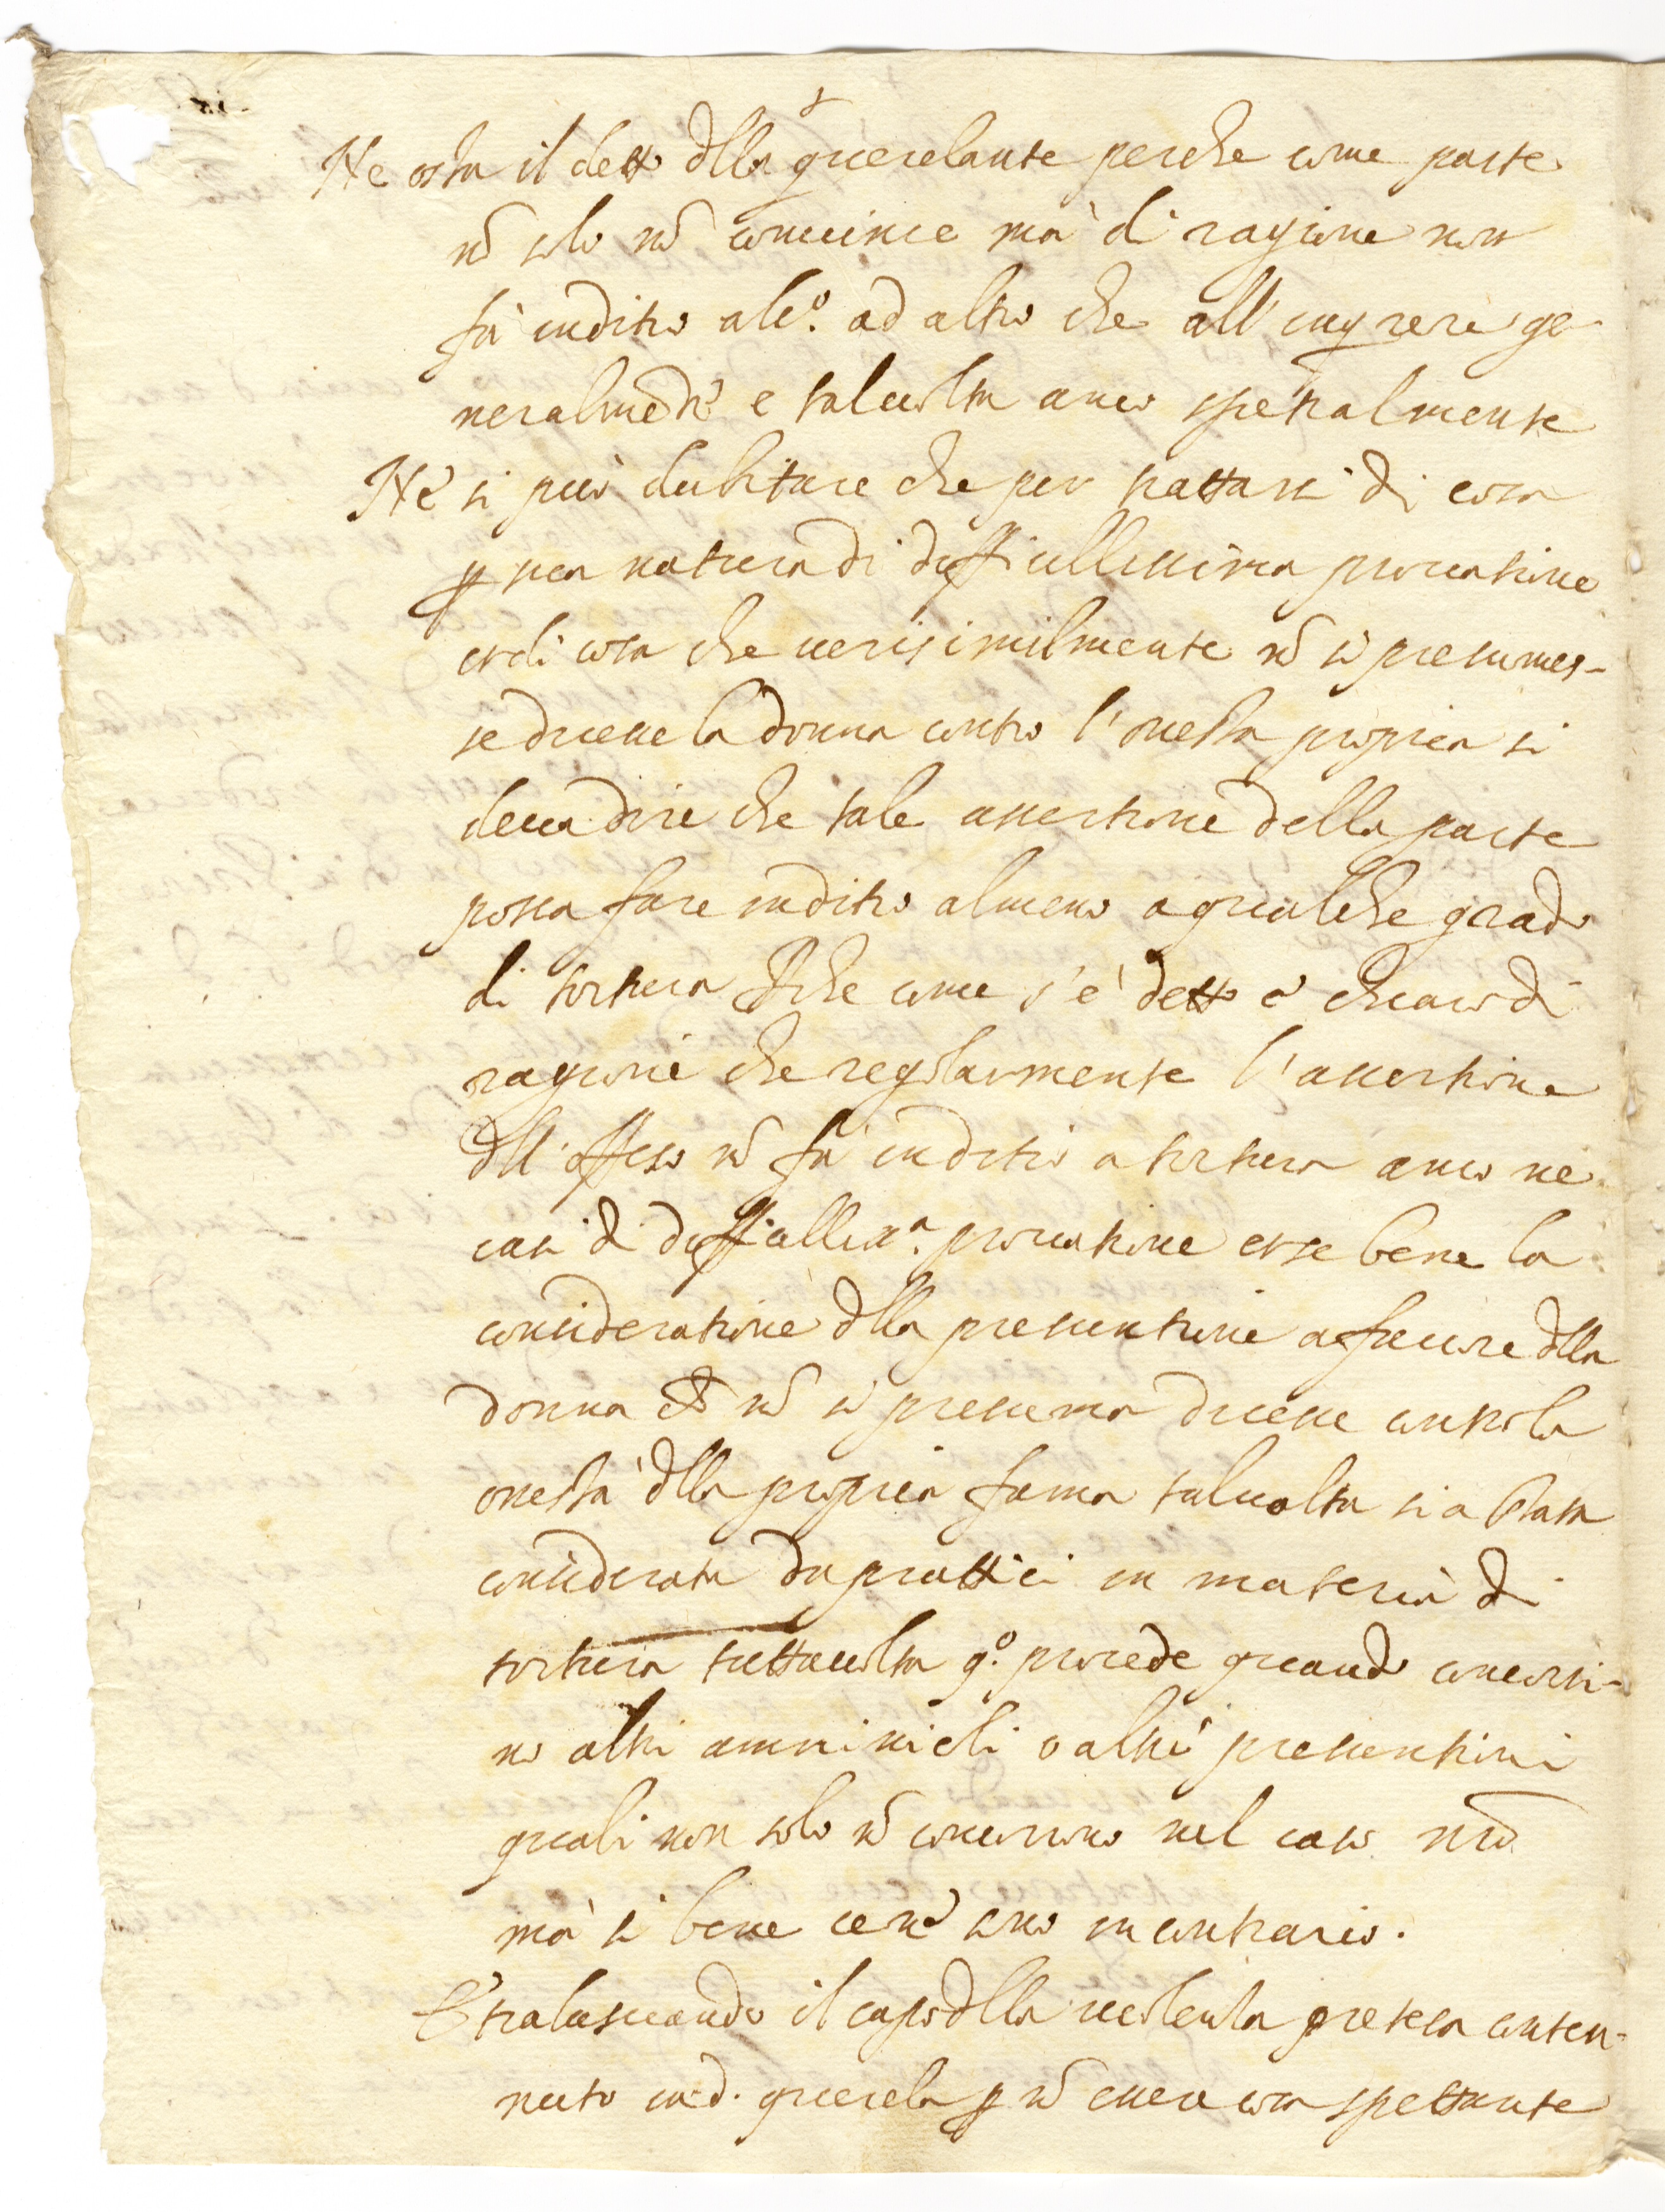 Ne osta il detto dlla querelante perche come parte
nō solo nō conuince mà di ragione non
fà inditio alc.º ad altro che all' inqrere ge-
neralmēte e taluolta anco spetialmente
Ne si può dubitare che per trattarsi di cosa
p sua natura di difficillissima prouatione
et di cosa che uerisimilmente nō si presumes-
se dicesse la donna contro l'onestà propria si
deua dire che tale assertione della parte
possa fare inditio almeno a qualche grado
di tortura Pche come s'è detto è chiaro di
ragione che regolarmente l'assertione
dll' offeso nō fà inditio a tortura anco ne
casi di difficilliss.ª prouatione et se bene la
consideratione dlla presuntione a fauore dlla
donna che nō si presuma dicesse contro la
onestà dlla propria fama taluolta sia stata
considerata da prattici in materia di
tortura tuttauolta q.º procede quando concorri-
no altri amminicoli o altre presuntioni
quali non solo nō concorrono nel caso nrō
mà si bene ce ne sono in contrario.
E tralasciando il capo dlla uiolenta pretesa conten-
nuto in d. querela p nō essere cosa spettante